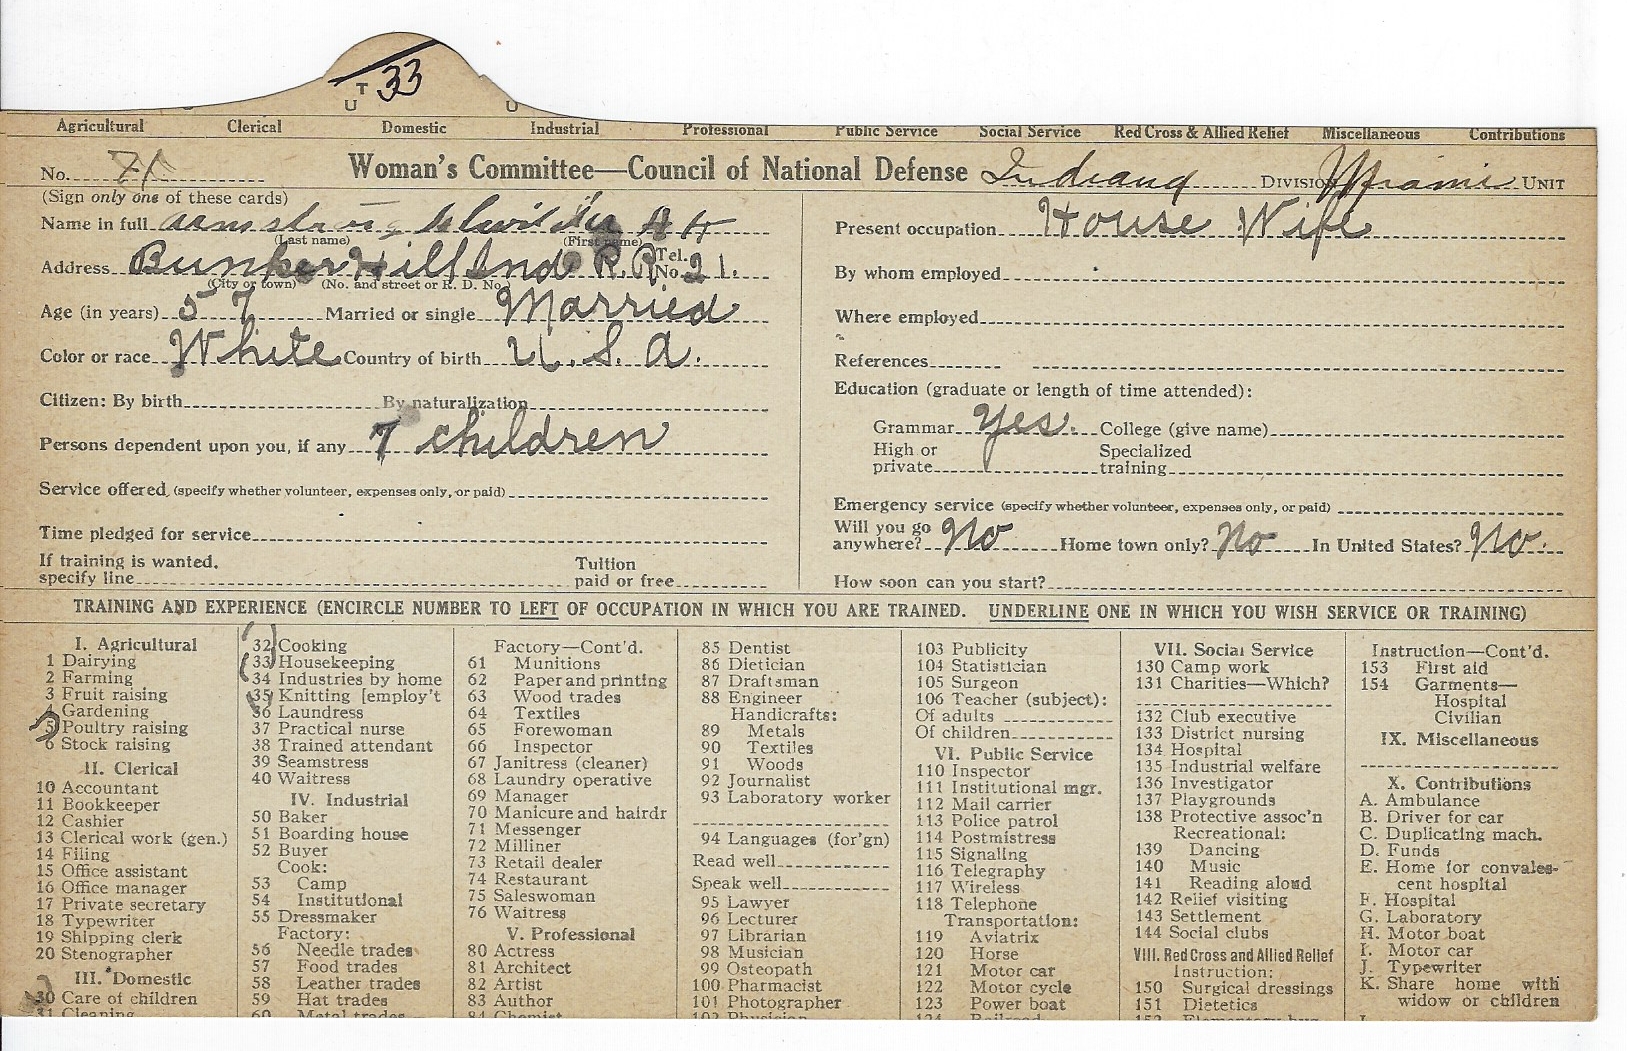 33
T
U U
Agricultural Clerical Domestic Industrial Professional Public Service Social Service Red Cross & Allied Relief Miscellaneous Contributions
No. 71 Woman's Committee—Council of National Defense Indiana DIVISION Miami UNIT
(Sign only one of these cards)
Name in full Armstrong
(Last name) (First name)
Address Bunker Hill Ind R.R. Tel. No. 21.
(City or town) (No. and street or R. D. No.)
Age (in years) 57 Married or single Married
Color or race White Country of birth U. S. A.
Citizen: By birth By naturalization
Persons dependent upon you, if any 7 children
Service offered, (specify whether volunteer, expenses only, or paid)
Time pledged for service
If training is wanted, Tuition
specify line paid or free
Present occupation House Wife
By whom employed
Where employed
References
Education (graduate or length of time attended):
Grammar Yes. College (give name)
High or Specialized
private training
Emergency service (specify whether volunteer, expenses only, or paid)
Will you go
anywhere? No Home town only? No In United States? No.
How soon can you start?
TRAINING AND EXPERIENCE (ENCIRCLE NUMBER TO LEFT OF OCCUPATION IN WHICH YOU ARE TRAINED. UNDERLINE ONE IN WHICH YOU WISH SERVICE OR TRAINING)
I. Agricultural
1 Dairying
2 Farming
3 Fruit raising
4 Gardening
5 Poultry raising
6 Stock raising
II. Clerical
10 Accountant
11 Bookkeeper
12 Cashier
13 Clerical work (gen.)
14 Filing
15 Office assistant
16 Office manager
17 Private secretary
18 Typewriter
19 Shipping clerk
20 Stenographer
III. Domestic
30 Care of children
31 Cleaning
32 Cooking
33 Housekeeping
34 Industries by home
35 Knitting [employ't
36 Laundress
37 Practical nurse
38 Trained attendant
39 Seamstress
40 Waitress
IV. Industrial
50 Baker
51 Boarding house
52 Buyer
Cook:
53 Camp
54 Institutional
55 Dressmaker
Factory:
56 Needle trades
57 Food trades
58 Leather trades
59 Hat trades
60 Metal trades
Factory—Cont'd.
61 Munitions
62 Paper and printing
63 Wood trades
64 Textiles
65 Forewoman
66 Inspector
67 Janitress (cleaner)
68 Laundry operative
69 Manager
70 Manicure and hairdr
71 Messenger
72 Milliner
73 Retail dealer
74 Restaurant
75 Saleswoman
76 Waitress
V. Professional
80 Actress
81 Architect
82 Artist
83 Author
84 Chemist
85 Dentist
86 Dietician
87 Draftsman
88 Engineer
Handicrafts:
89 Metals
90 Textiles
91 Woods
92 Journalist
93 Laboratory worker
94 Languages (for'gn)
Read well
Speak well
95 Lawyer
96 Lecturer
97 Librarian
98 Musician
99 Osteopath
100 Pharmacist
101 Photographer
102 Physician
103 Publicity
104 Statistician
105 Surgeon
106 Teacher (subject):
Of adults
Of children
VI. Public Service
110 Inspector
111 Institutional mgr.
112 Mail carrier
113 Police patrol
114 Postmistress
115 Signaling
116 Telegraphy
117 Wireless
118 Telephone
Transportation:
119 Aviatrix
120 Horse
121 Motor car
122 Motor cycle
123 Power boat
124 Railroad
VII. Social Service
130 Camp work
131 Charities—Which?
132 Club executive
133 District nursing
134 Hospital
135 Industrial welfare
136 Investigator
137 Playgrounds
138 Protective assoc'n
Recreational:
139 Dancing
140 Music
141 Reading aloud
142 Relief visiting
143 Settlement
144 Social clubs
VIII. Red Cross and Allied Relief
Instruction:
150 Surgical dressings
151 Dietetics
152 Elementary hyg.
Instruction—Cont'd.
153 First aid
154 Garments—
Hospital
Civilian
IX. Miscellaneous
X. Contributions
A. Ambulance
B. Driver for car
C. Duplicating mach.
D. Funds
E. Home for convales-
cent hospital
F. Hospital
G. Laboratory
H. Motor boat
I. Motor car
J. Typewriter
K. Share home with
widow or children
L.